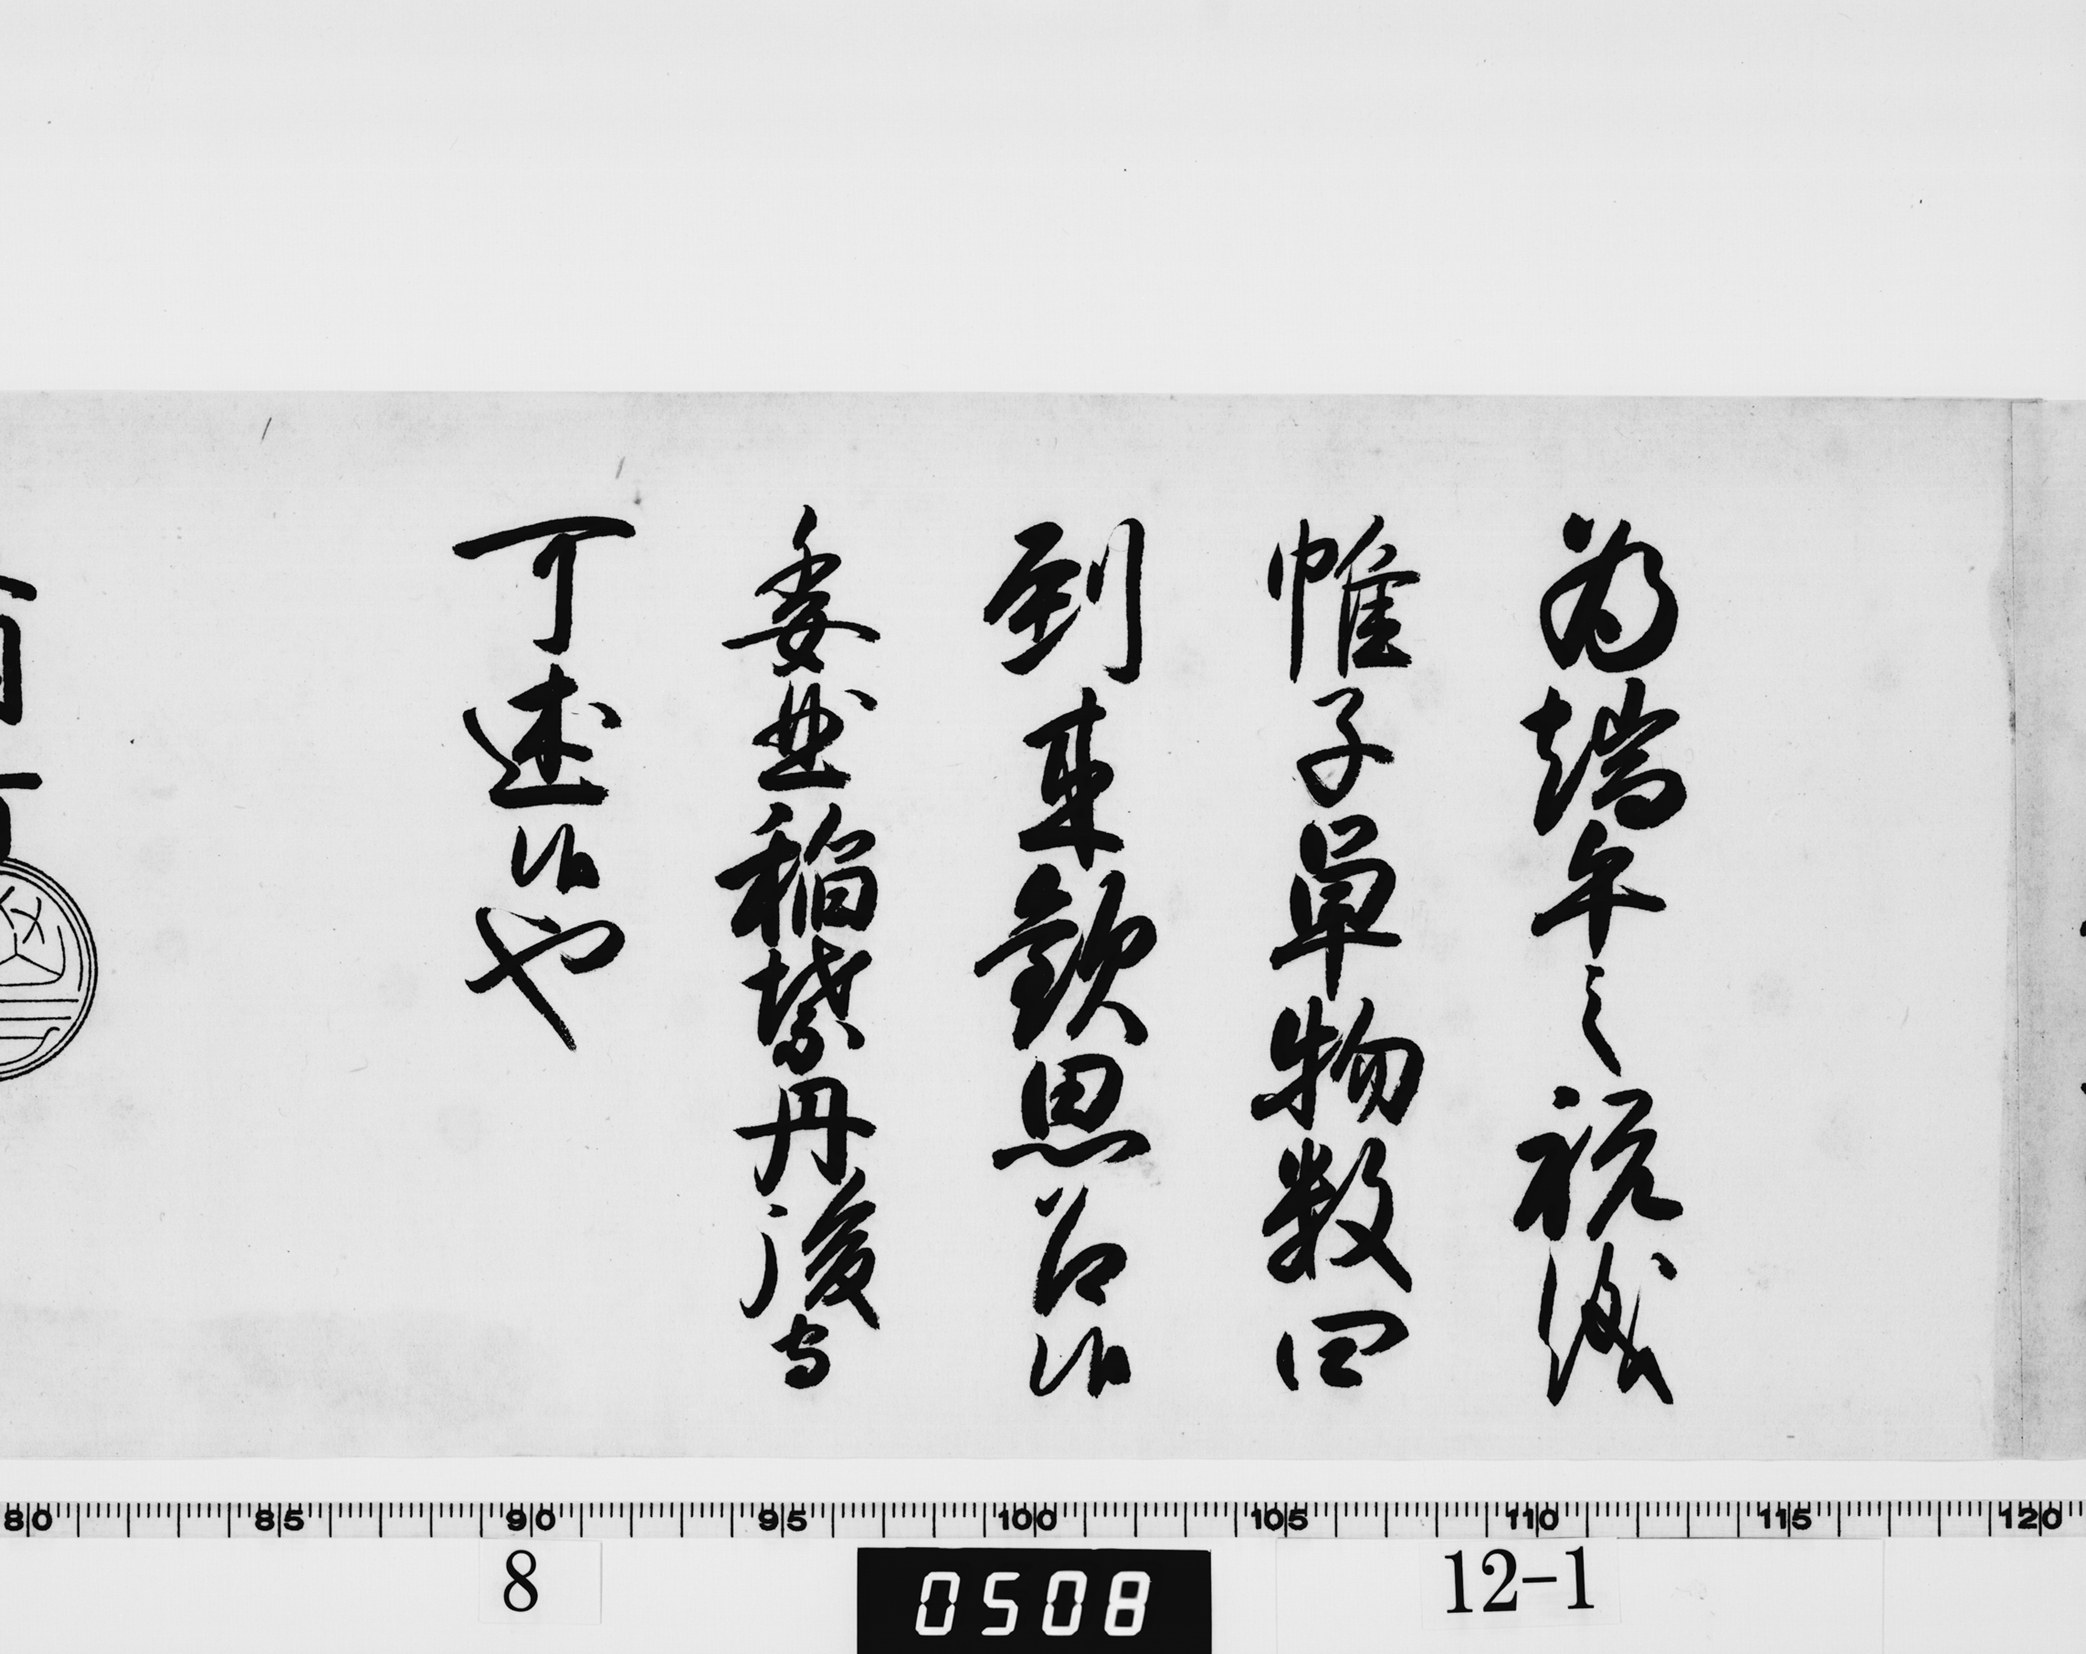 為端午之祝儀
帷子単物数四
到来歓思召候
委曲稲葉丹後守
可述候也
80 85 90 95 100 105 110 115 120
8 0508 12-1